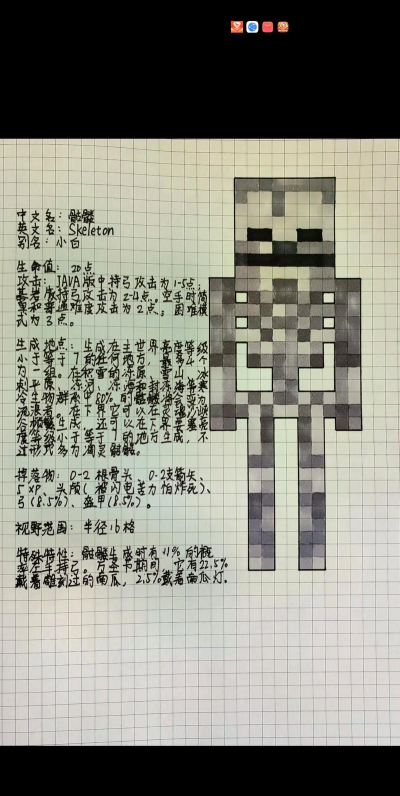 中文名：骷髅
英文名：Skeleton
别名：小白
生命值：20点
攻击：JAVA版中持弓攻击为1-5点；
基岩版持弓攻击为2-4点。空手时简
单和普通难度攻击为2点；困难模
式为3点。
生成地点：生成在主世界亮度等级
小于等于7的任何地方，最多4个
为一组。在积雪的冻原、雪山、冰
刺平原、冻河、冻洋和封冻海岸寒
冷生物群系中80%的骷髅将会变为
流浪者。在下界它可以在灵魂沙峡
谷频繁生成，还可以在下界要塞亮
度等级小于等于7的地方生成，不
过形式多为凋灵骷髅。
掉落物：0-2根骨头、0-2支箭矢、
5 XP、头颅（被闪电苦力怕炸死）、
弓（8.5%）、盔甲（8.5%）。
视野范围：半径16格
特殊特性：骷髅生成时有11%的概
率左手持弓。万圣节期间，它有22.5%
戴着雕刻过的南瓜，2.5%戴着南瓜灯。